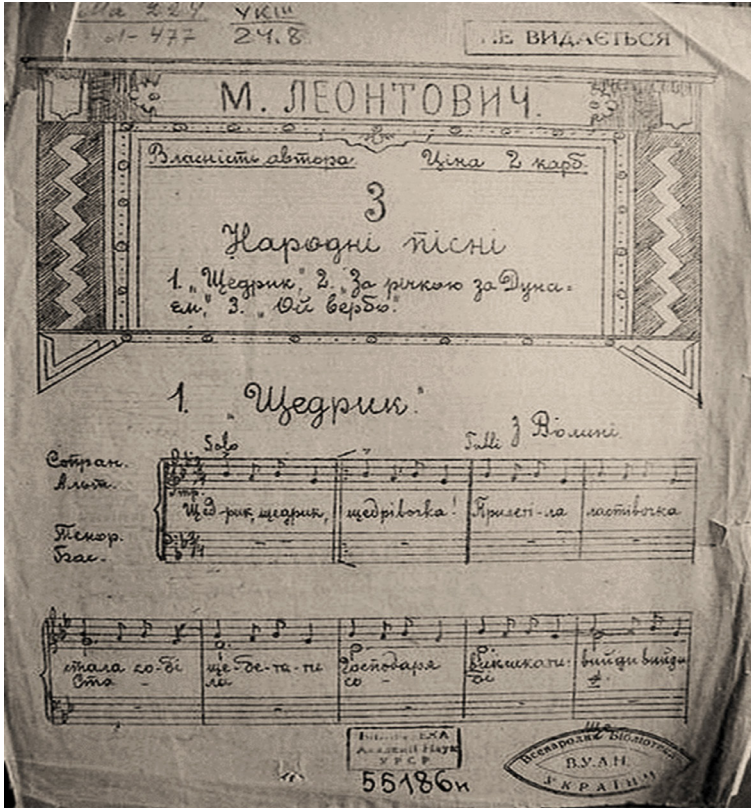 Ма 224 УКШ
477 24.8
НЕ ВИДАЄТЬСЯ
М. ЛЕОНТОВИЧ.
Власність автора. Ціна 2 карб.
3
Народні пісні
1. „Щедрик„ 2. „За річкою за Дуна=
єм„ 3. „Ой вербо".
1. „Щедрик."
Solo Tutti З Волині.
Сопран.
Альт.
Щед-рик, щедрик, щедрівочка! Прилеті-ла ластівочка
Тенор.
Бас.
стала со-бі ще-бе-та-ти Господаря викликати. вийди вийди
Ста - ла со - бі
Ще
Академії Наук
УРСР
55186н
Всенародня Бібліотека
В.У.А.Н.
УКРАЇНИ